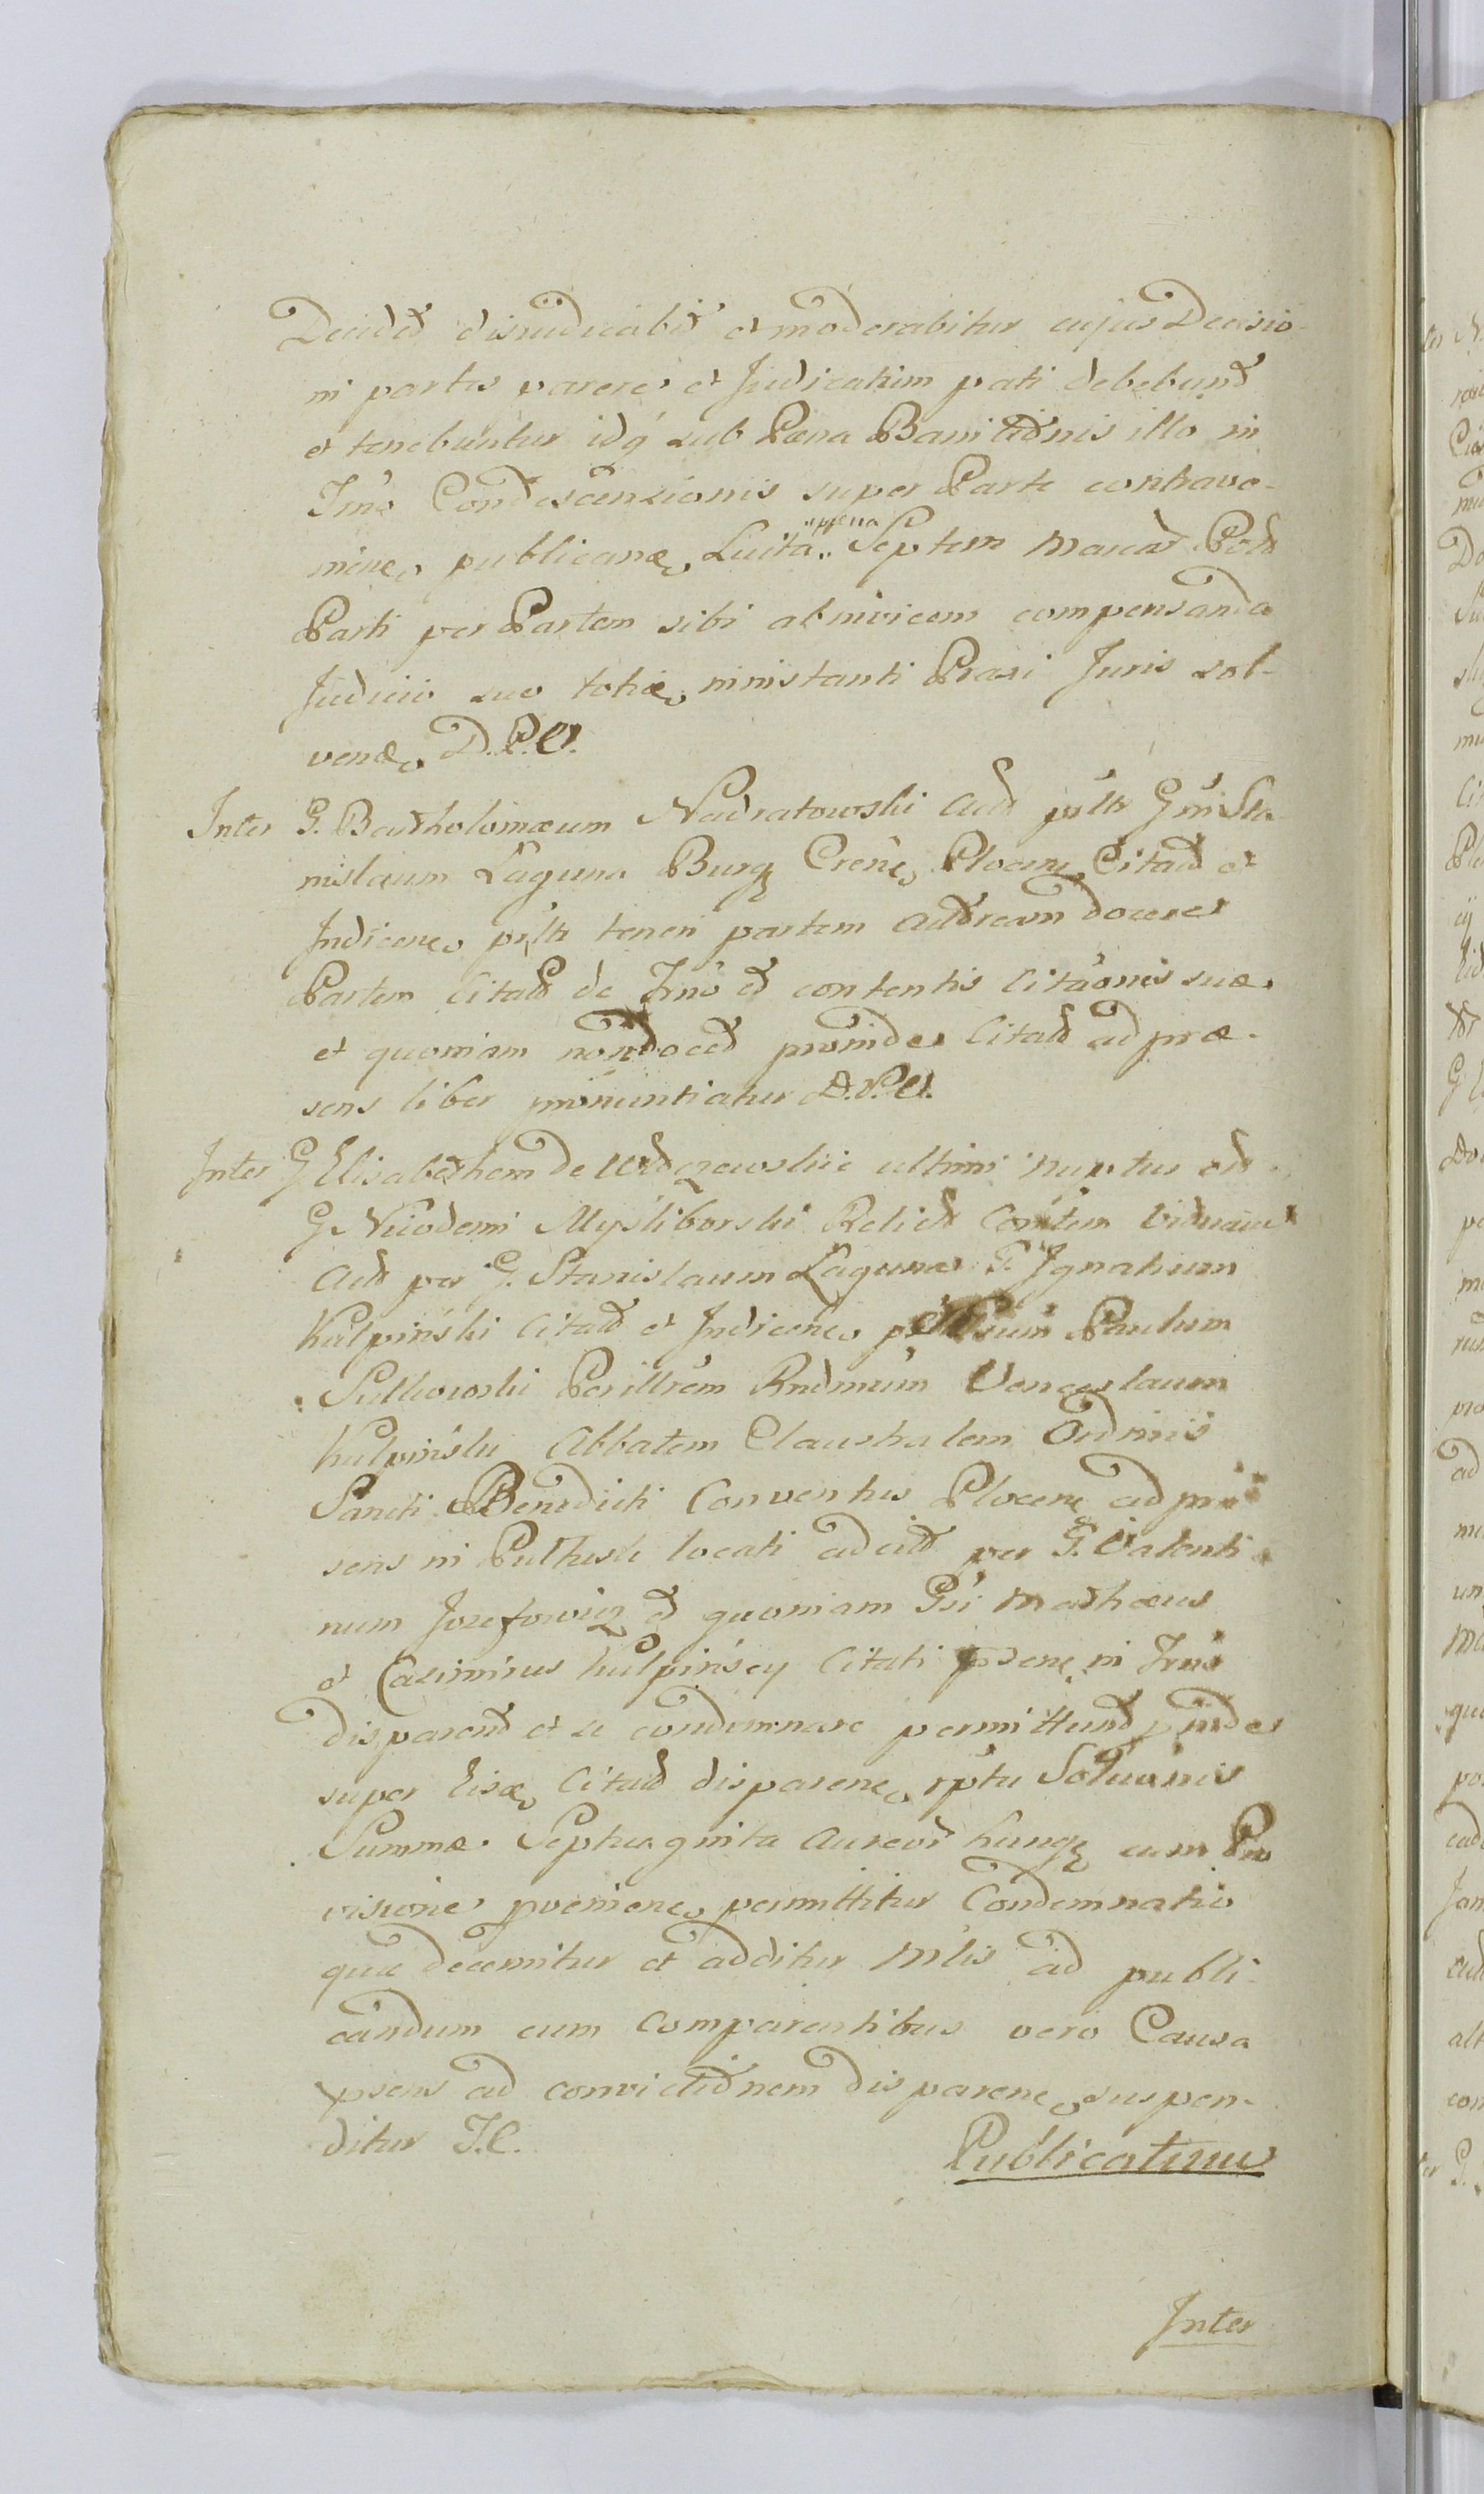 Decidet disiudicabit et moderabitur cujus Decisio-
ni partes parere et Judicatum pati debebunt
et tenebuntur idq sub Pœna Bannitionis illo in
Trno Condescensionis super Parte contrave-
niene publicanæ Luita "pœna" Septem Marcar Pol
Parti per Partem sibi abinvicem compensanda
Judicio suo toties instanti Praxi Juris sol-
venæ D.P.O.
Inter G. Bartholomæum Nadratowski Act pltr Gnm Sta-
nislaum Łaguna Burg Crene Plocen Citat et
Indicene pltr teneri partem Actoream docere
Partem Citat de Trno et contentis Citaonis suæ
et quoniam non docet proinde Citat ad præ-
sens liber pronuntiatur D.P.O.
Inter G Elisabetham de ultimi nuptus
G. Nicodemi Mysliborski Relict Consortem Viduam
Act per G. Stanislaum Łaguna G. Ignatium
Kulpiński Citat et Indicene Paulum
Sułkowski Perillrem Rndmum Venceslaum
Kulpiński Abbatem Claustralem Ordinis
Sancti Benedicti Conventus Plocen ad præ
sens in Pułtusk locati adcit per G. Valenti
num Jozefowicz et quoniam Gsi Mathæus
et Casimirus Kulpińscy Citati psene in Trno
disparent et se condemnare permittunt pinde
super eisæ Citat disparene rptu Solutionis
Summæ Septuaginta Aureor Hung cum Pro
visione pveniene permittitur Condemnatio
quæ decernitur et additur Mlis ad publi-
candum cum Comparentibus vero Causa
psens ad convictionem disparene suspen-
ditur T.C.
Publicatum
Inter